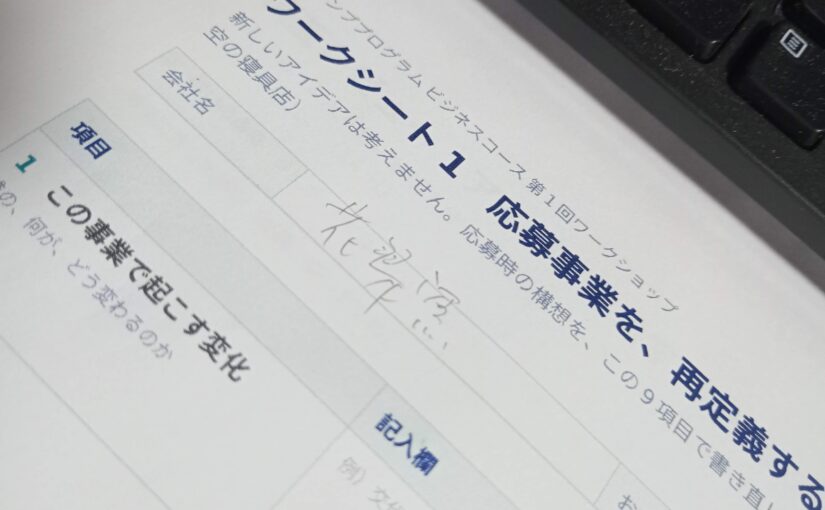 ンププログラム ビジネスコース 第1回ワークショップ
ワークシート1 応募事業を、再定義する
新しいアイデアは考えません。応募時の構想を、この9項目で書き直し
空の寝具店）
会社名
項目
記入欄
1 この事業で起こす変化
の、何が、どう変わるのか
例）交代
お